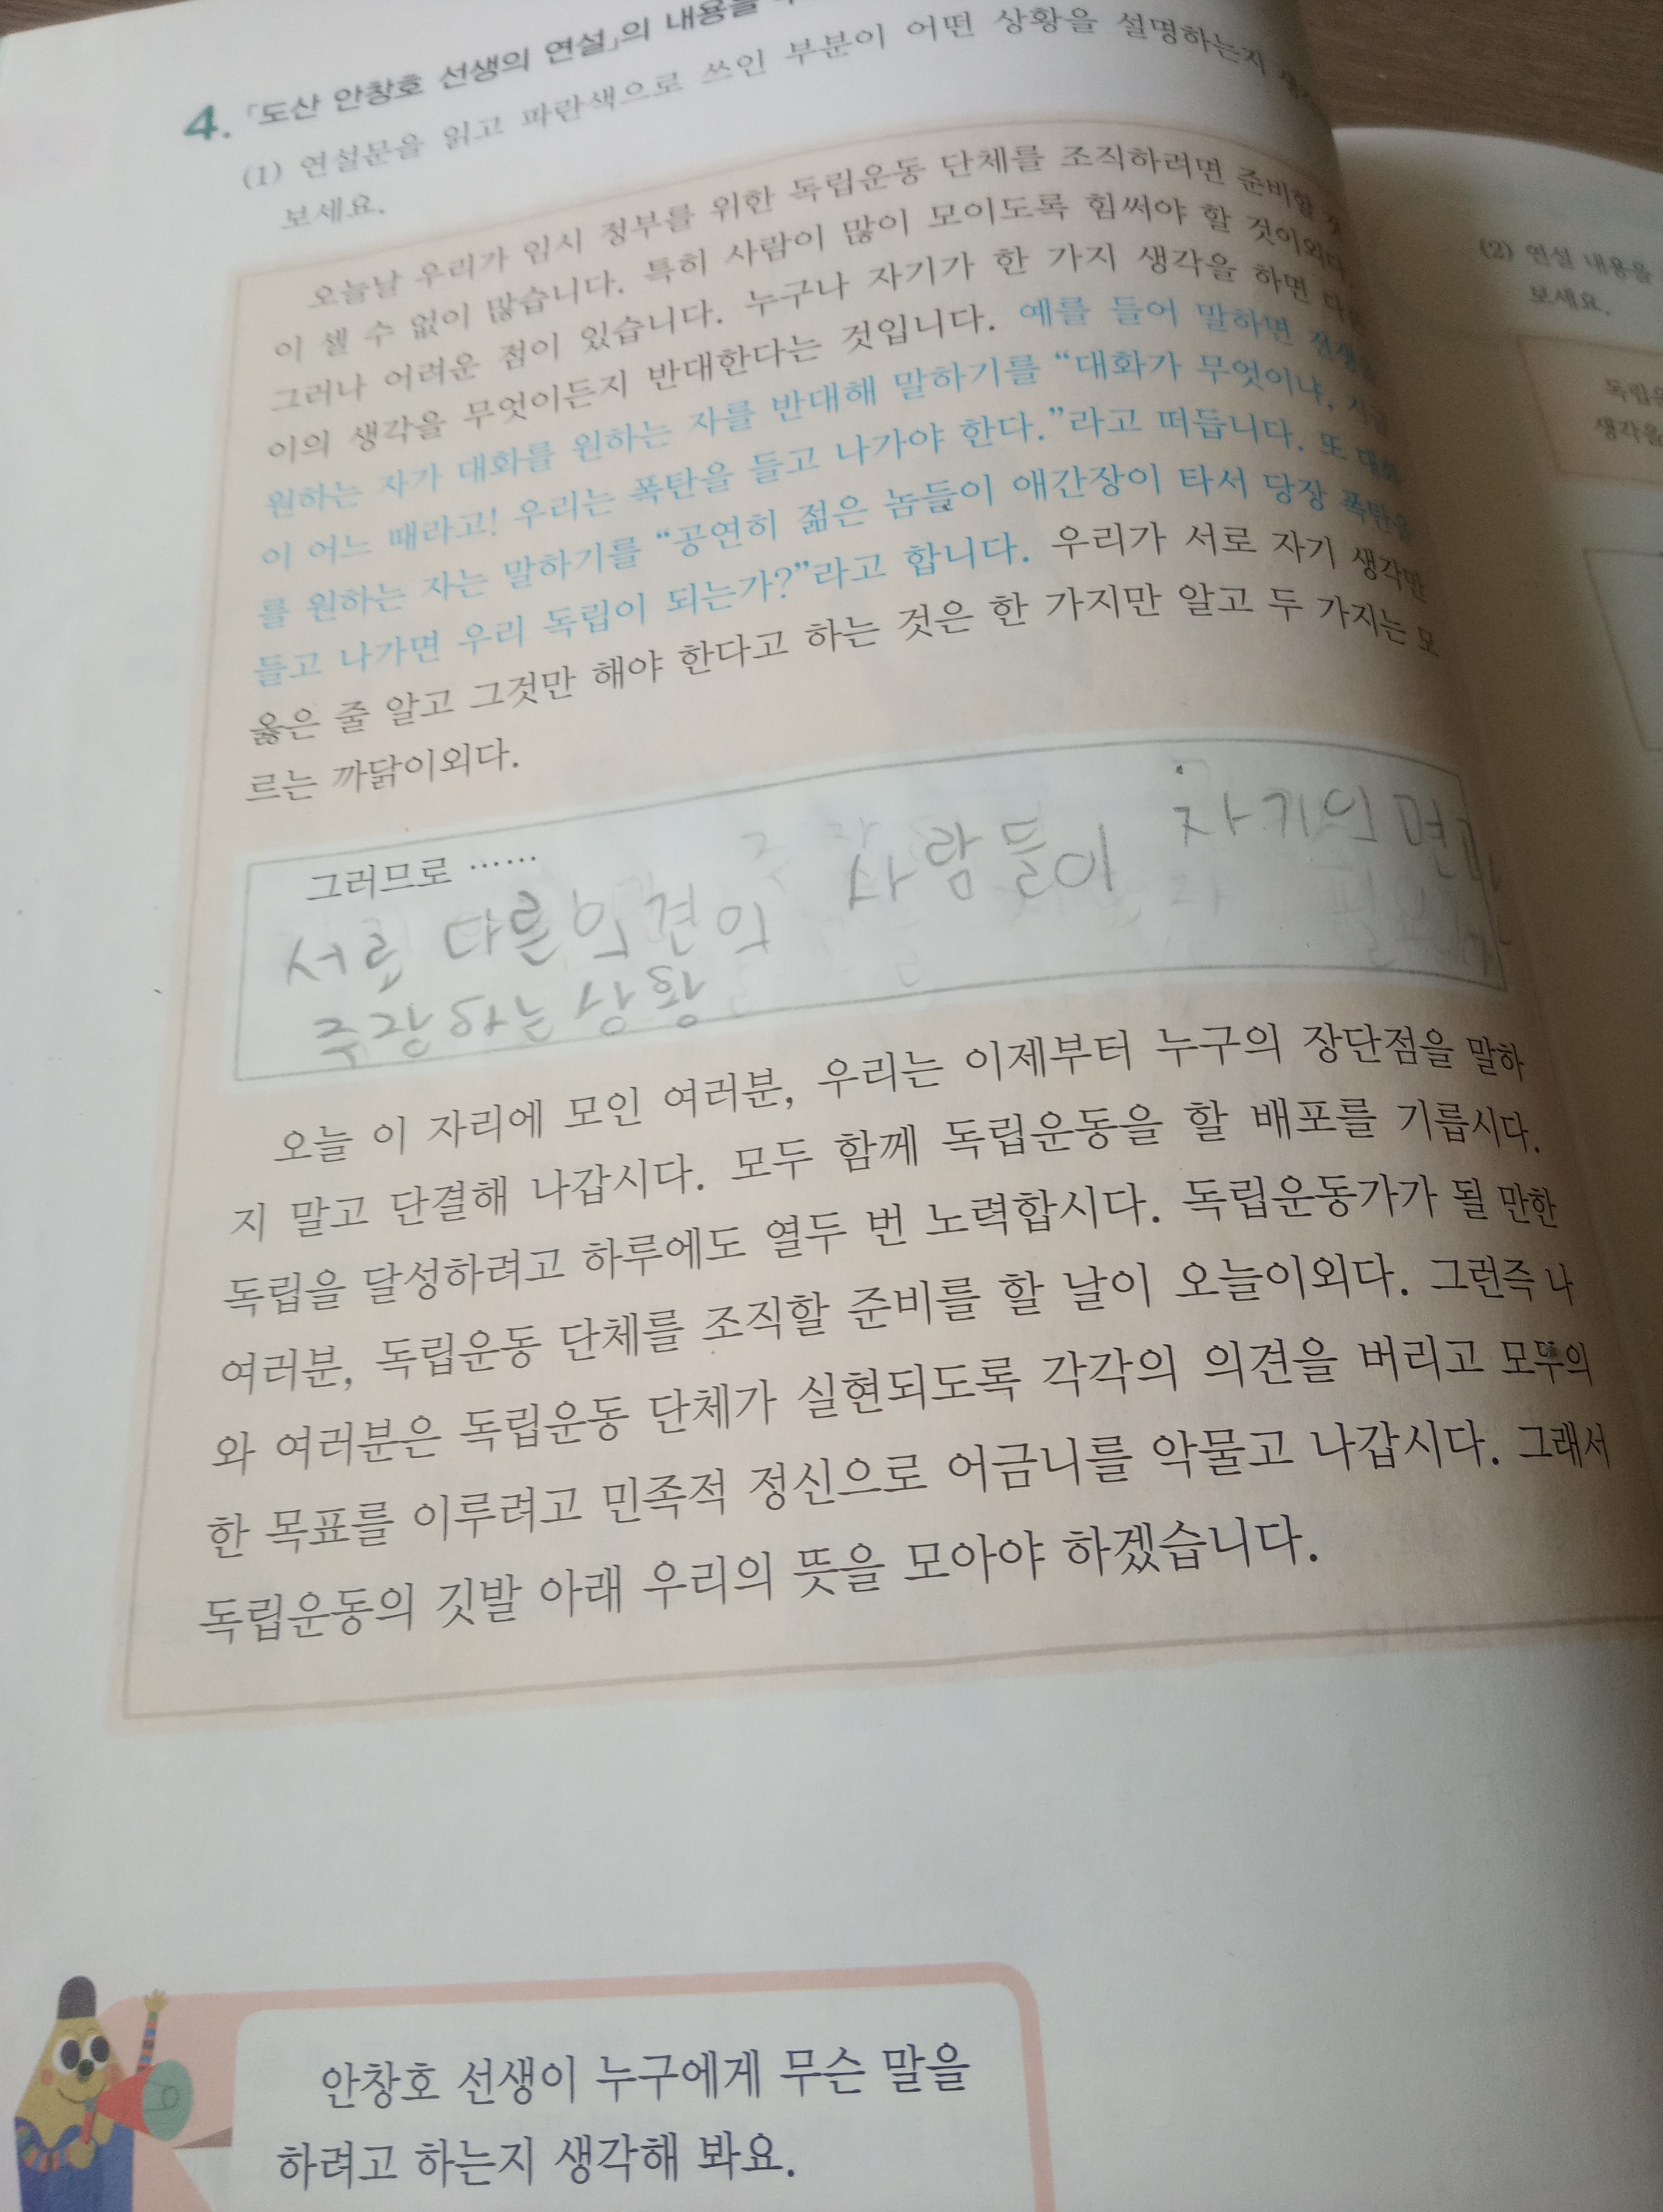 4. 「도산 안창호 선생의 연설」의 내용을
(1) 연설문을 읽고 파란색으로 쓰인 부분이 어떤 상황을 설명하는지
보세요.
오늘날 우리가 임시 정부를 위한 독립운동 단체를 조직하려면 준비할
이 셀 수 없이 많습니다. 특히 사람이 많이 모이도록 힘써야 할 것이외다.
그러나 어려운 점이 있습니다. 누구나 자기가 한 가지 생각을 하면 다른
이의 생각을 무엇이든지 반대한다는 것입니다. 예를 들어 말하면 전쟁을
원하는 자가 대화를 원하는 자를 반대해 말하기를 “대화가 무엇이냐, 지금
이 어느 때라고! 우리는 폭탄을 들고 나가야 한다.”라고 떠듭니다. 또 대화
를 원하는 자는 말하기를 “공연히 젊은 놈들이 애간장이 타서 당장 폭탄을
들고 나가면 우리 독립이 되는가?”라고 합니다. 우리가 서로 자기 생각만
옳은 줄 알고 그것만 해야 한다고 하는 것은 한 가지만 알고 두 가지는 모
르는 까닭이외다.
그러므로 ……
서로 다른 의견의 사람들이 자기의 면만
주장하는 상황
오늘 이 자리에 모인 여러분, 우리는 이제부터 누구의 장단점을 말하
지 말고 단결해 나갑시다. 모두 함께 독립운동을 할 배포를 기릅시다.
독립을 달성하려고 하루에도 열두 번 노력합시다. 독립운동가가 될 만한
여러분, 독립운동 단체를 조직할 준비를 할 날이 오늘이외다. 그런즉 나
와 여러분은 독립운동 단체가 실현되도록 각각의 의견을 버리고 모두의
한 목표를 이루려고 민족적 정신으로 어금니를 악물고 나갑시다. 그래서
독립운동의 깃발 아래 우리의 뜻을 모아야 하겠습니다.
안창호 선생이 누구에게 무슨 말을
하려고 하는지 생각해 봐요.
(2) 연설 내용을
보세요.
생각을